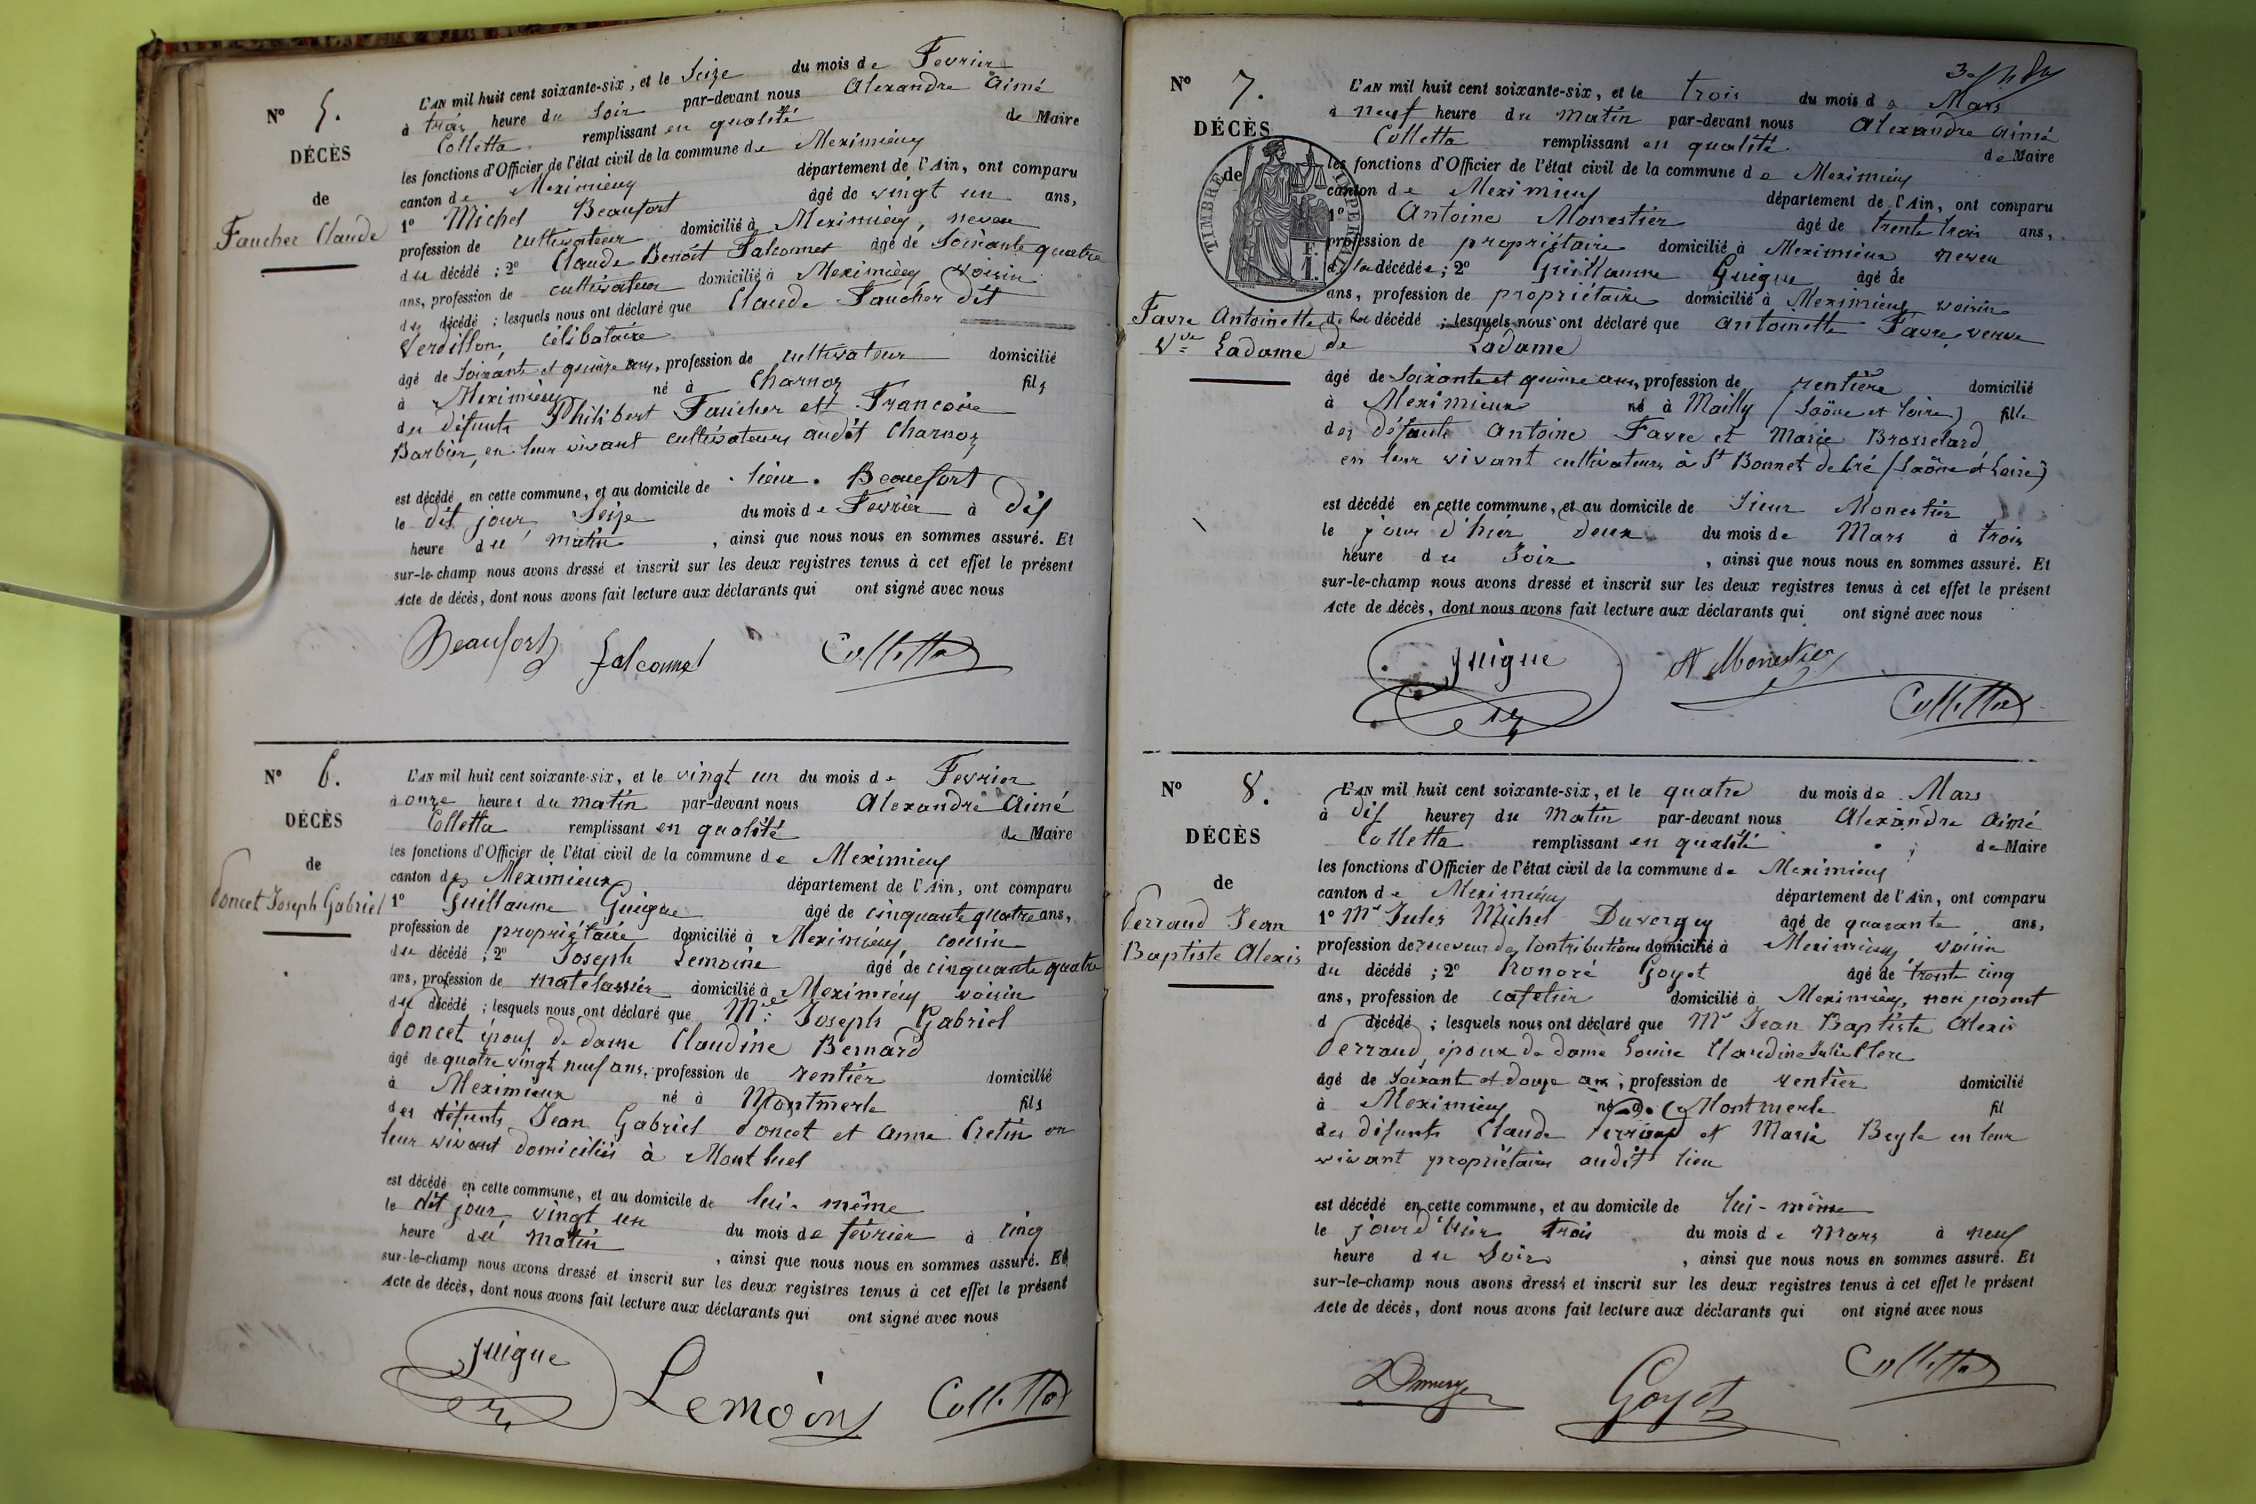 N° 5.
DÉCÈS
de
Faucher Claude
L'AN mil huit cent soixante-six, et le Seize du mois de Fevrier
à trois heure du Soir par-devant nous Alexandre Aimé
Colletta remplissant en qualité de Maire
les fonctions d'Officier de l'état civil de la commune de Meximieux
canton de Meximieux département de l'Ain, ont comparu
1° Michel Beaufort âgé de vingt un ans,
profession de cultivateur domicilié à Meximieux, neveu
du décédé ; 2° Claude Benoit Falconnet âgé de Soixante quatre
ans, profession de cultivateur domicilié à Meximieux voisin
du décédé ; lesquels nous ont déclaré que Claude Faucher dit
Verdillon, célibataire
âgé de Soixante et quinze ans, profession de cultivateur domicilié
à Meximieux né à Charnoz fils
des défunts Philibert Faucher et Francoise
Barbier, en leur vivant cultivateurs audit Charnoz
est décédé en cette commune, et au domicile de sieur Beaufort
le dit jour Seize du mois de Fevrier à dix
heure du matin , ainsi que nous nous en sommes assuré. Et
sur-le-champ nous avons dressé et inscrit sur les deux registres tenus à cet effet le présent
Acte de décès, dont nous avons fait lecture aux déclarants qui ont signé avec nous
Beaufort Falconnet Colletta
N° 6.
DÉCÈS
de
Poncet Joseph Gabriel
L'AN mil huit cent soixante-six, et le vingt un du mois de Fevrier
à onze heures du matin par-devant nous Alexandre Aimé
Colletta remplissant en qualité de Maire
les fonctions d'Officier de l'état civil de la commune de Meximieux
canton de Meximieux département de l'Ain, ont comparu
1° Guillaume Guigue âgé de cinquante quatre ans,
profession de propriétaire domicilié à Meximieux, cousin
du décédé ; 2° Joseph Lemoine âgé de cinquante quatre
ans, profession de matelassier domicilié à Meximieux voisin
du décédé ; lesquels nous ont déclaré que Mr Joseph Gabriel
Poncet époux de dame Claudine Bernard
âgé de quatre vingt neuf ans, profession de rentier domicilié
à Meximieux né à Montmerle fils
des défunts Jean Gabriel Poncet et Anne Cretin en
leur vivant domiciliés à Montluel
est décédé en cette commune, et au domicile de lui-même
le dit jour vingt un du mois de février à cinq
heure du matin , ainsi que nous nous en sommes assuré. Et
sur-le-champ nous avons dressé et inscrit sur les deux registres tenus à cet effet le présent
Acte de décès, dont nous avons fait lecture aux déclarants qui ont signé avec nous
Guigue Lemoine Colletta
N° 7.
DÉCÈS
de
TIMBRE IMPERIAL
Favre Antoinette
Vve Ladame
L'AN mil huit cent soixante-six, et le trois du mois de Mars
à neuf heure du matin par-devant nous Alexandre Aimé
Colletta remplissant en qualité de Maire
les fonctions d'Officier de l'état civil de la commune de Meximieux
canton de Meximieux département de l'Ain, ont comparu
1° Antoine Monestier âgé de trente trois ans,
profession de propriétaire domicilié à Meximieux neveu
de la décédée ; 2° Guillaume Guigue âgé de
ans, profession de propriétaire domicilié à Meximieux voisin
de la décédé ; lesquels nous ont déclaré que Antoinette Favre, veuve
de Ladame
âgé de Soixante et quinze ans, profession de rentière domicilié
à Meximieux né à Mailly (Saône et Loire) fille
des défunts Antoine Favre et Marie Brosselard
en leur vivant cultivateurs à St Bonnet de Cré (Saône et Loire)
est décédé en cette commune, et au domicile de Sieur Monestier
le jour d'hier deux du mois de Mars à trois
heure du Soir , ainsi que nous nous en sommes assuré. Et
sur-le-champ nous avons dressé et inscrit sur les deux registres tenus à cet effet le présent
Acte de décès, dont nous avons fait lecture aux déclarants qui ont signé avec nous
Guigue A Monestier Colletta
N° 8.
DÉCÈS
de
Perraud Jean
Baptiste Alexis
L'AN mil huit cent soixante-six, et le quatre du mois de Mars
à dix heures du Matin par-devant nous Alexandre Aimé
Colletta remplissant en qualité de Maire
les fonctions d'Officier de l'état civil de la commune de Meximieux
canton de Meximieux département de l'Ain, ont comparu
1° Mr Jules Michel Duvergey âgé de quarante ans,
profession de receveur des Contributions domicilié à Meximieux, voisin
du décédé ; 2° Honoré Goyet âgé de trente cinq
ans, profession de cafetier domicilié à Meximieux, non parent
d décédé ; lesquels nous ont déclaré que Mr Jean Baptiste Alexis
Perraud, époux de dame Louise Claudine Julie Clerc
âgé de Soixant et douze ans, profession de rentier domicilié
à Meximieux né à Montmerle fil
des défunts Claude Perraud et Marie Beyle en leur
vivant propriétaires audit lieu
est décédé en cette commune, et au domicile de lui-même
le jour d'hier trois du mois de Mars à neuf
heure du Soir , ainsi que nous nous en sommes assuré. Et
sur-le-champ nous avons dressé et inscrit sur les deux registres tenus à cet effet le présent
Acte de décès, dont nous avons fait lecture aux déclarants qui ont signé avec nous
Goyet Colletta